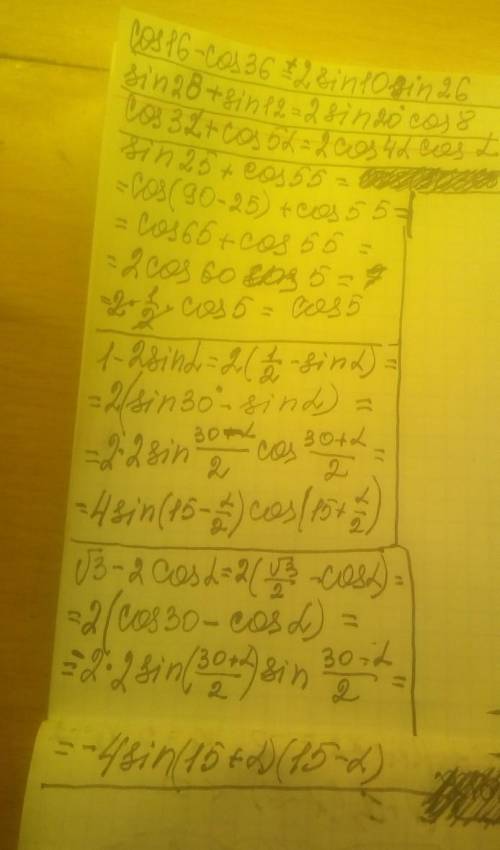 cos16-cos36=+2sin10sin26
sin28+sin12=2sin20°cos8
cos3α+cos5α=2cos4α cos α
sin25+cos55=
=cos(90-25)+cos55=
=cos65+cos55=
=2cos60 cos5=
=2·1/2·cos5=cos5
1-2sinα=2(1/2-sinα)=
=2(sin30°-sinα)=
=2·2sin (30-α)/2 cos (30+α)/2=
=4sin(15-α/2)cos(15+α/2)
√3-2cosα=2(√3/2-cosα)=
=2(cos30-cosα)=
=-2·2sin((30+α)/2)sin (30-α)/2=
=-4sin(15+α)(15-α)